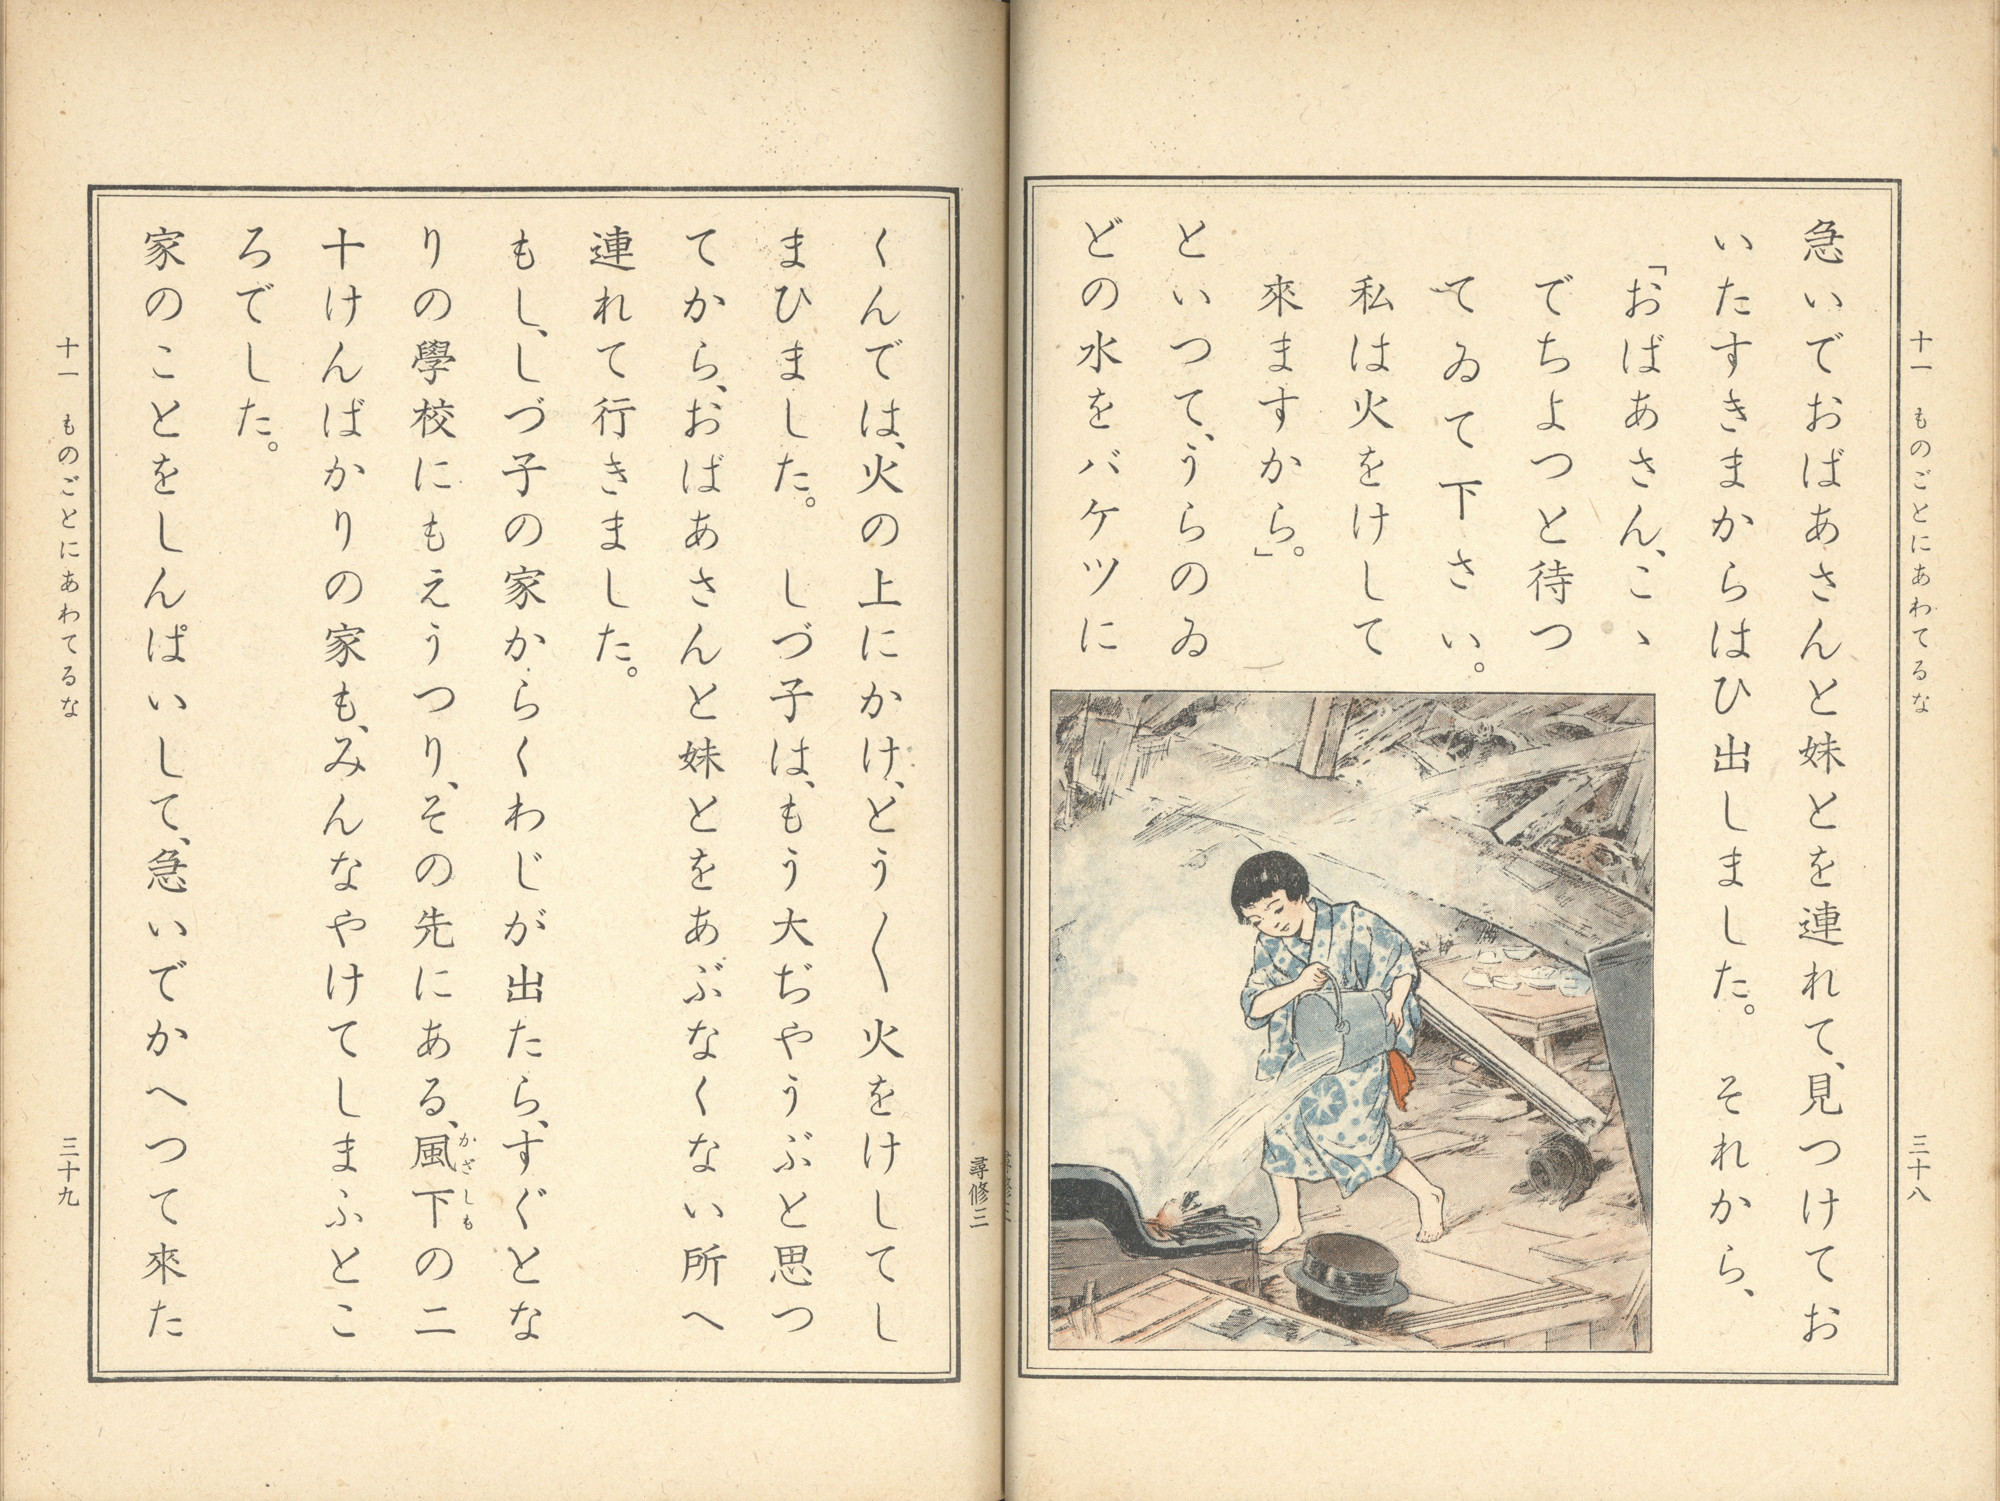 十一　ものごとにあわてるな
三十八
急いでおばあさんと妹とを連れて、見つけてお
いたすきまからはひ出しました。　それから、
「おばあさん、こゝ
でちよつと待つ
てゐて下さい。
私は火をけして
來ますから。」
といつて、うらのゐ
どの水をバケツに
尋修三
くんでは、火の上にかけ、とう〳〵火をけしてし
まひました。　しづ子は、もう大ぢやうぶと思つ
てから、おばあさんと妹とをあぶなくない所へ
連れて行きました。
もし、しづ子の家からくわじが出たら、すぐとな
りの學校にもえうつり、その先にある、風下の二
かざしも
十けんばかりの家も、みんなやけてしまふとこ
ろでした。
家のことをしんぱいして、急いでかへつて來た
十一　ものごとにあわてるな
三十九